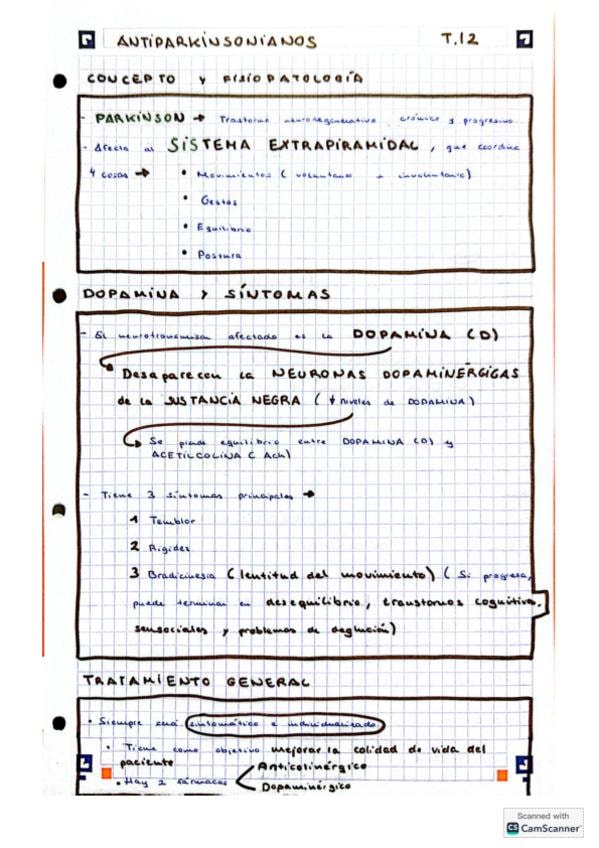 ANTIPARKINSONIANOS T.12
CONCEPTO Y FISIOPATOLOGÍA
- PARKINSON → Trastorno neurodegenerativo, crónico y progresivo
- Afecta al SISTEMA EXTRAPIRAMIDAL, que coordina
4 cosas → • Movimientos (voluntario + involuntario)
• Gestos
• Equilibrio
• Postura
DOPAMINA Y SÍNTOMAS
- El neurotransmisor afectado es la DOPAMINA (D)
Desaparecen la NEURONAS DOPAMINÉRGICAS
de la SUSTANCIA NEGRA (↓ niveles de DOPAMINA)
Se pierde equilibrio entre DOPAMINA (D) y
ACETILCOLINA (Ach)
- Tiene 3 síntomas principales →
1 Temblor
2 Rigidez
3 Bradicinesia (lentitud del movimiento) (Si progresa,
puede terminar en desequilibrio, transtornos cognitivo,
sensociales y problemas de deglución)
TRATAMIENTO GENERAL
• Siempre será sintomático e individualizado
• Tiene como objetivo mejorar la calidad de vida del
paciente
• Hay 2 fármacos Anticolinérgico
Dopaminérgico
Scanned with
CS CamScanner